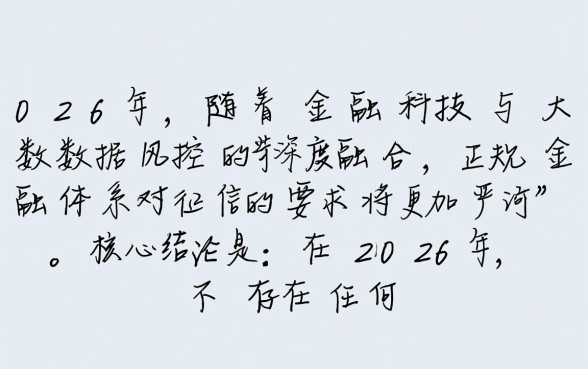 026年，随着金融科技与大
数数据风控的深度融合，正规金
融体系对征信的要求将更加严河”
。核心结论是：在2026年,
不存在任何